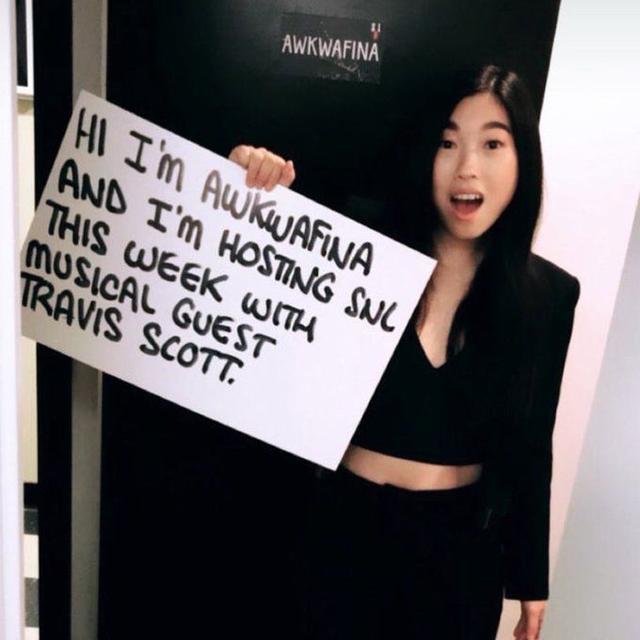 AWKWAFINA
HI I'm AWKWAFINA
AND I'm HOSTING SNL
THIS WEEK WITH
MUSICAL GUEST
TRAVIS SCOTT.